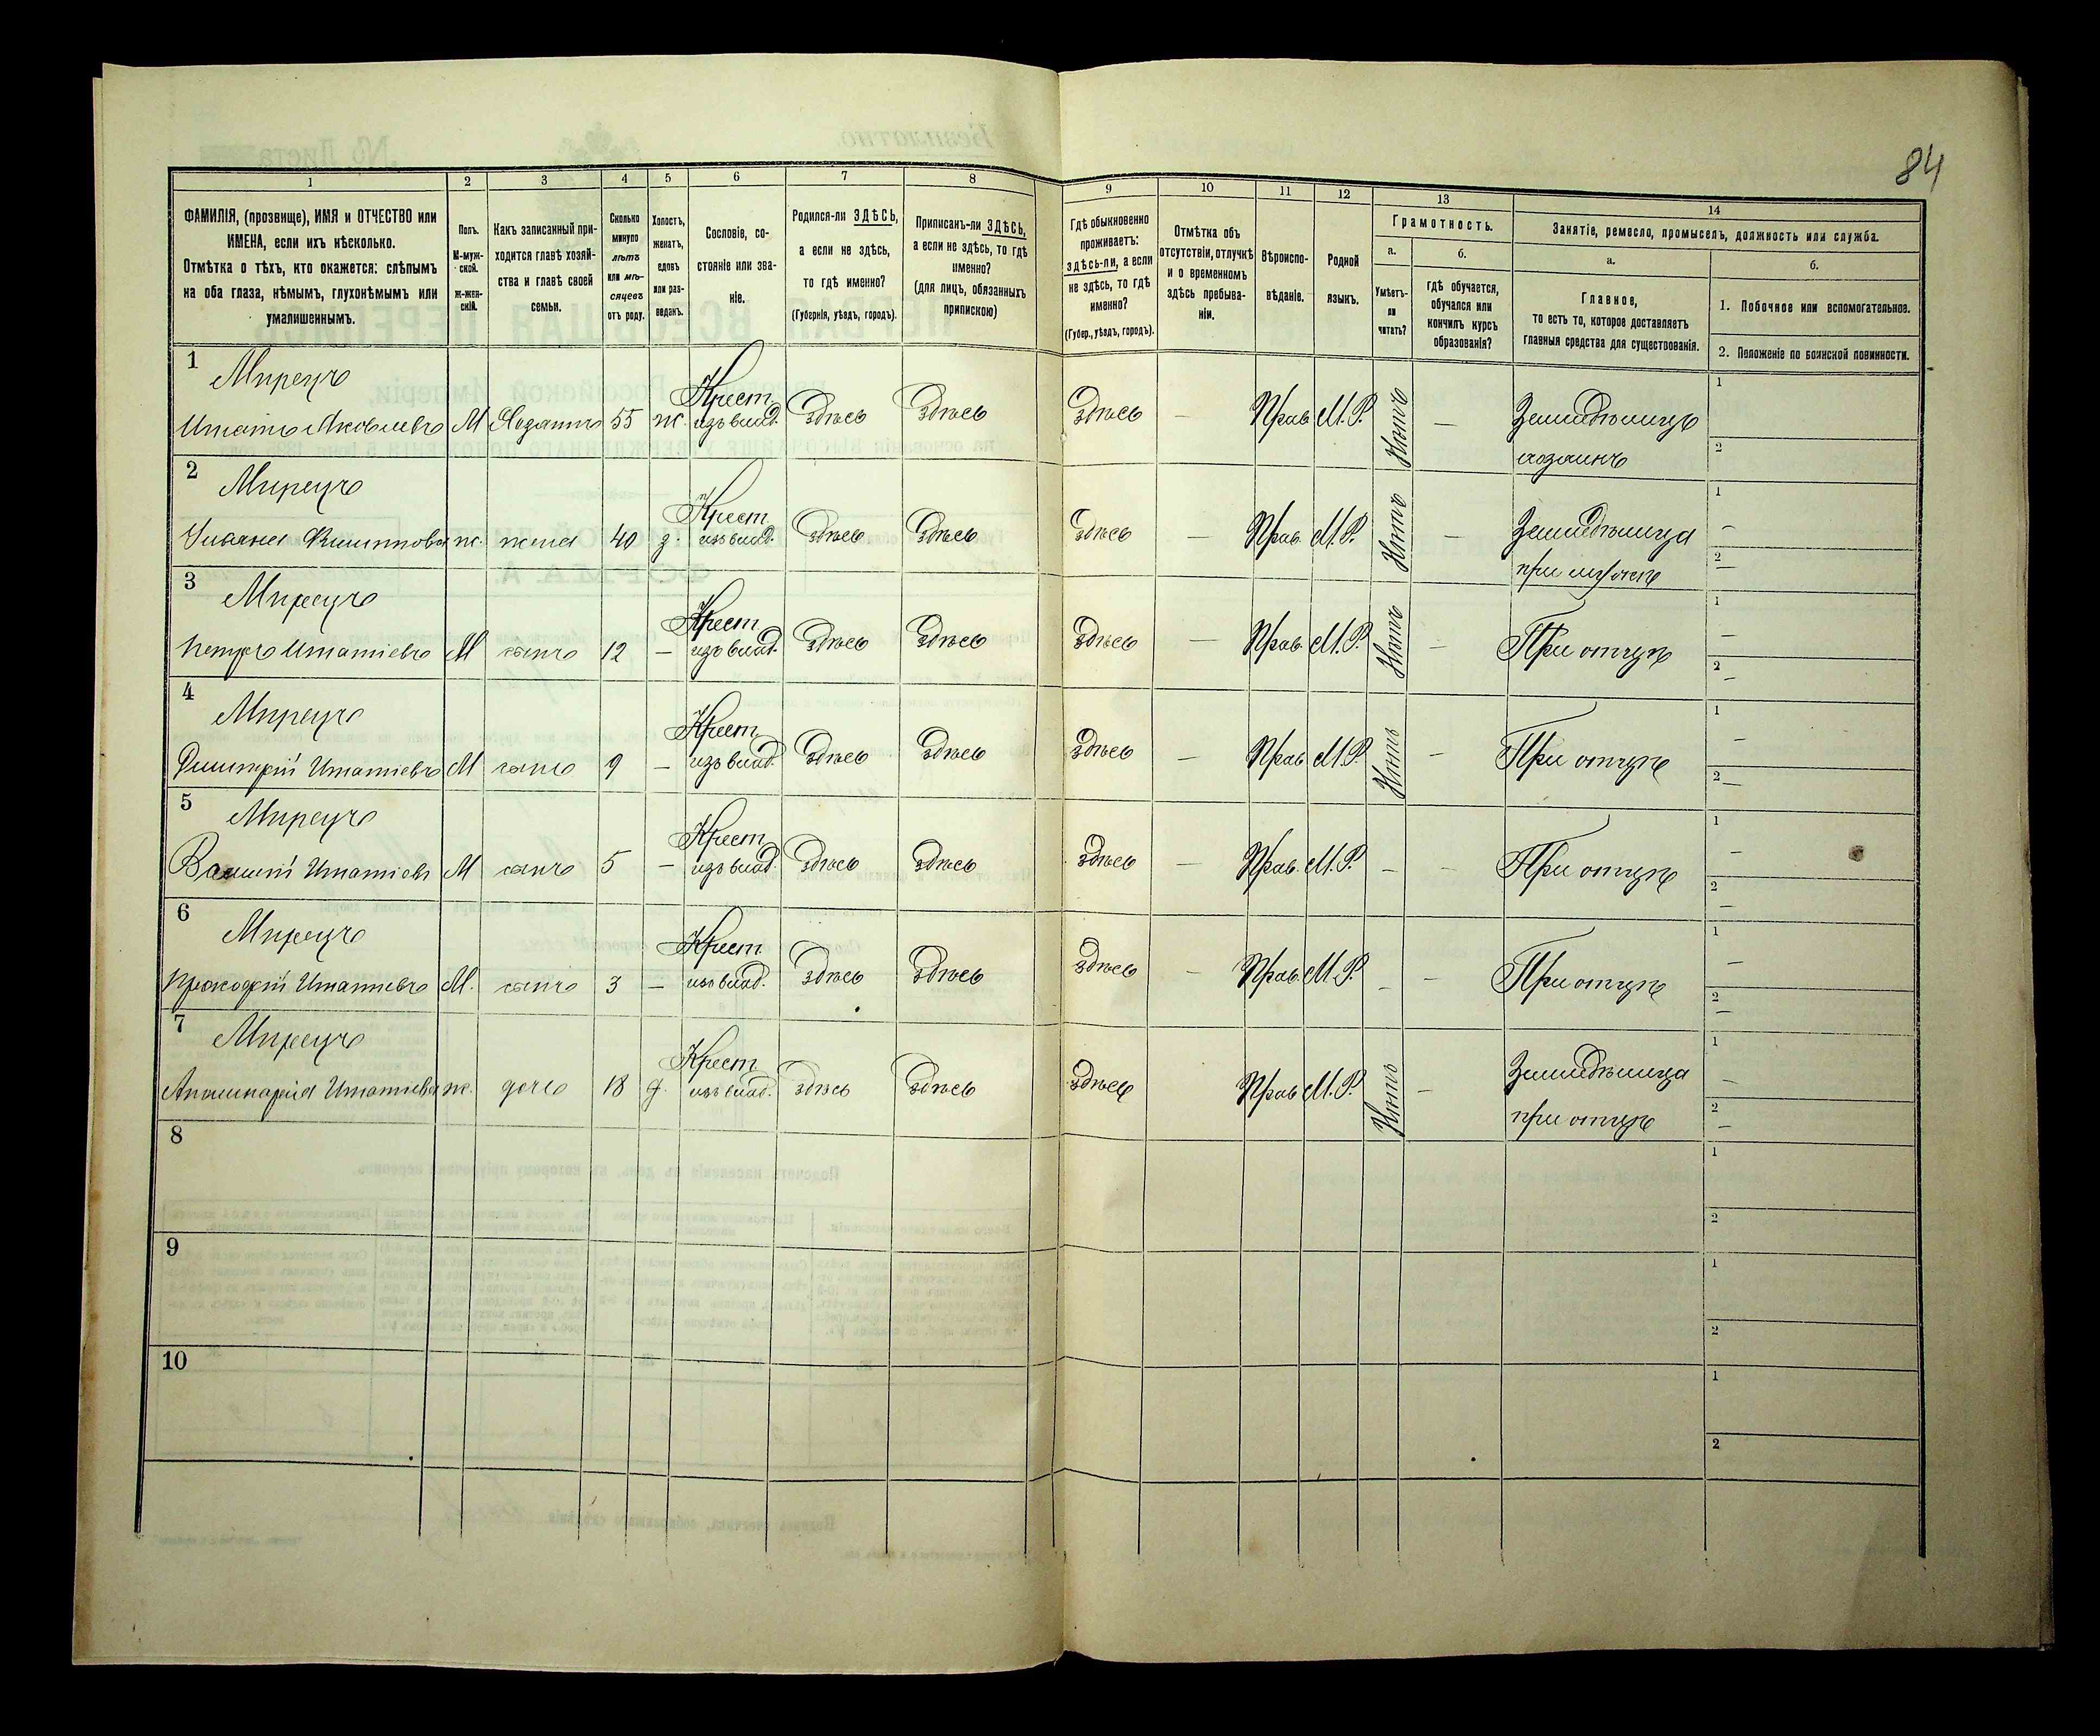 84
1 2 3 4 5 6 7 8 9 10 11 12 13 14
ФАМИЛІЯ, (прозвище), ИМЯ и ОТЧЕСТВО или
ИМЕНА, если ихъ нѣсколько.
Отмѣтка о тѣхъ, кто окажется: слѣпымъ
на оба глаза, нѣмымъ, глухонѣмымъ или
умалишеннымъ.
Полъ.
М-муж-
ской.
ж-жен-
скій.
Какъ записанный при-
ходится главѣ хозяй-
ства и главѣ своей
семьи.
Сколько
минуло
лѣтъ
или мѣ-
сяцевъ
отъ роду.
Холостъ,
женатъ,
вдовъ
или раз-
веденъ.
Сословіе, со-
стояніе или зва-
ніе.
Родился-ли ЗДѢСЬ,
а если не здѣсь,
то гдѣ именно?
(Губернія, уѣздъ, городъ).
Приписанъ-ли ЗДѢСЬ,
а если не здѣсь, то гдѣ
именно?
(для лицъ, обязанныхъ
припискою)
Гдѣ обыкновенно
проживаетъ:
здѣсь-ли, а если
не здѣсь, то гдѣ
именно?
(Губер., уѣздъ, городъ).
Отмѣтка объ
отсутствіи, отлучкѣ
и о временномъ
здѣсь пребыва-
ніи.
Вѣроиспо-
вѣданіе.
Родной
языкъ.
Грамотность.
а.
Умѣетъ-
ли
читать?
б.
гдѣ обучается,
обучался или
кончилъ курсъ
образованія?
Занятіе, ремесло, промыселъ, должность или служба.
а.
Главное,
то есть то, которое доставляетъ
главныя средства для существованія.
б.
1. Побочное или вспомогательное.
2. Положеніе по воинской повинности.
1 Мирецъ Крест. 1
Игнатъ Яковлевъ М Хозяинъ 55 ж. изъ влад. Здѣсь Здѣсь Здѣсь — Прав. М.Р. Нѣтъ — Земледѣлецъ
хозяинъ 2
2 Мирецъ Крест. 1
Филиппова ж. жена 40 з. изъ влад. Здѣсь Здѣсь Здѣсь — Прав. М.Р. Нѣтъ — Земледѣлица —
при мужѣ 2 —
3 Мирецъ Крест. 1
Петръ Игнатіевъ М сынъ 12 — изъ влад. Здѣсь Здѣсь Здѣсь — Прав. М.Р. Нѣтъ — При отцѣ —
2 —
4 Мирецъ Крест. 1
Димитрій Игнатіевъ М сынъ 9 — изъ влад. Здѣсь Здѣсь Здѣсь — Прав. М.Р. Нѣтъ — При отцѣ —
2 —
5 Мирецъ Крест. 1
Василій Игнатіевъ М сынъ 5 — изъ влад. Здѣсь Здѣсь Здѣсь — Прав. М.Р. — — При отцѣ —
2 —
6 Мирецъ Крест. 1
Игнатіевъ М. сынъ 3 — изъ влад. Здѣсь Здѣсь Здѣсь — Прав. М.Р. — — При отцѣ —
2 —
7 Мирецъ Крест. 1
Аполинарія Игнатіева ж. дочь 18 д. изъ влад. Здѣсь Здѣсь Здѣсь Прав. М.Р. Нѣтъ — Земледѣлица —
при отцѣ 2 —
8 1
2
9 1
2
10 1
2